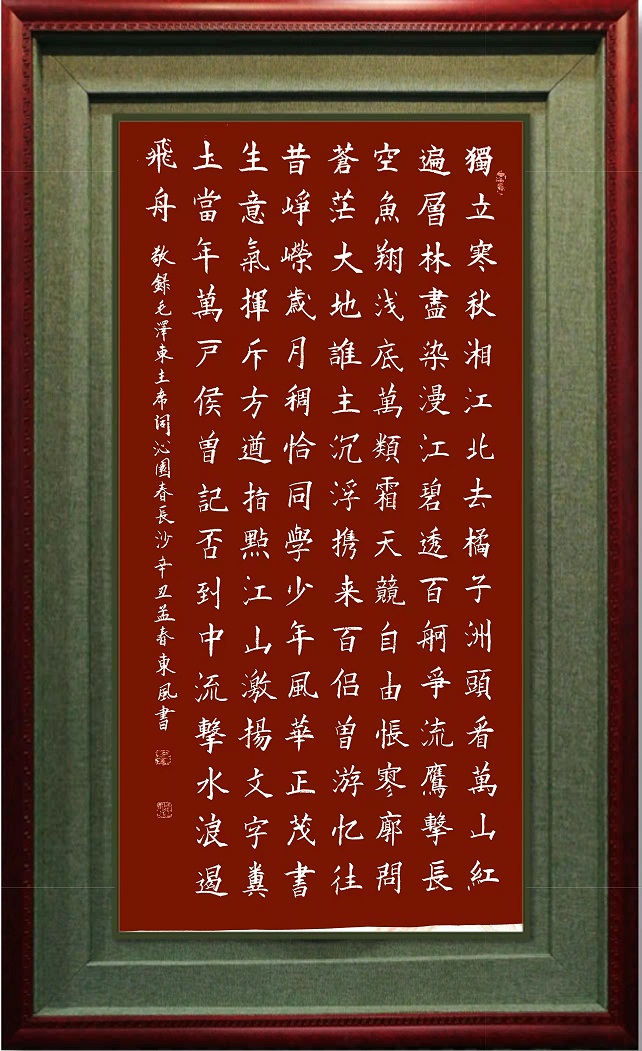 獨立寒秋湘江北去橘子洲頭看萬山紅
遍層林盡染漫江碧透百舸爭流鷹擊長
空魚翔浅底萬類霜天競自由悵寥廓問
蒼茫大地誰主沉浮携来百侣曽游忆往
昔崢嶸歲月稠恰同學少年風華正茂書
生意氣揮斥方遒指點江山激揚文字糞
土當年萬戸侯曽記否到中流擊水浪遏
飛舟 敬録毛澤東主席詞沁園春長沙辛丑孟春東風書